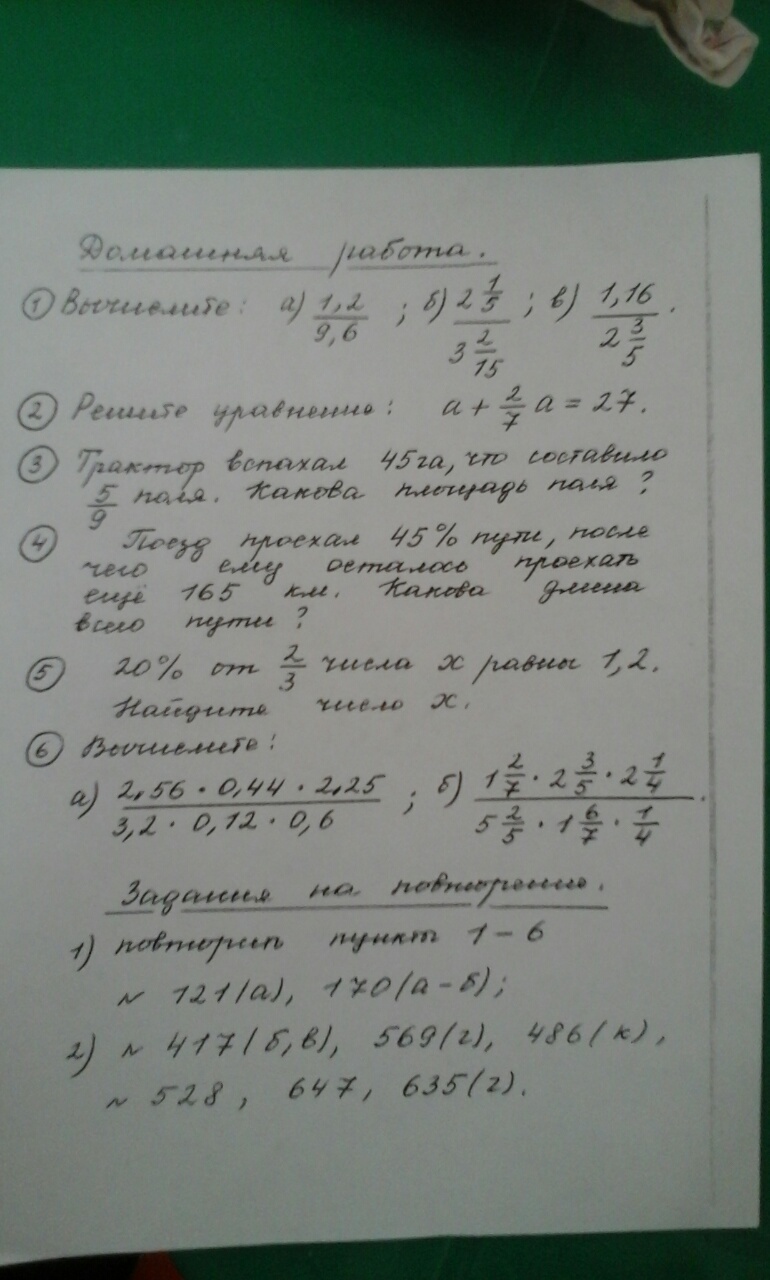 Домашняя работа.
① Вычислите: а) 1,2/9,6 ; б) 2 1/5 / 3 2/15 ; в) 1,16 / 2 3/5 .
② Решите уравнение: a + 2/7 a = 27.
③ Трактор вспахал 45 га, что составило
5/9 поля. Какова площадь поля ?
④ Поезд проехал 45% пути, после
чего ему осталось проехать
ещё 165 км. Какова длина
всего пути ?
⑤ 20% от 2/3 числа x равны 1,2.
Найдите число x.
⑥ Вычислите:
а) 2,56 · 0,44 · 2,25 / 3,2 · 0,12 · 0,6 ; б) 1 2/7 · 2 3/5 · 2 1/4 / 5 2/5 · 1 6/7 · 1/4 .
Задания на повторение.
1) повторить пункты 1 - 6
№ 121(а), 170(а-б);
2) № 417(б,в), 569(г), 486(к),
№ 528, 647, 635(г).